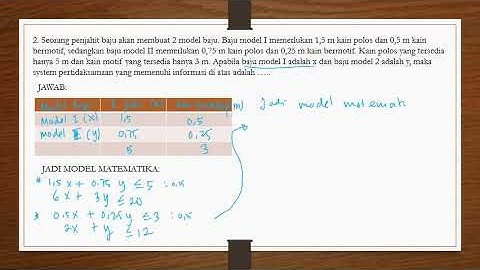 2. Seorang penjahit baju akan membuat 2 model baju. Baju model I memerlukan 1,5 m kain polos dan 0,5 m kain
bermotif, sedangkan baju model II memerlukan 0,75 m kain polos dan 0,25 m kain bermotif. Kain polos yang tersedia
hanya 5 m dan kain motif yang tersedia hanya 3 m. Apabila baju model I adalah x dan baju model 2 adalah y, maka
system pertidaksamaan yang memenuhi informasi di atas adalah ......
JAWAB:
Model Baju m) Jadi model matematik
Model I (x) 1,5 0,5
model II (y) 0,75 0,25
5 3
JADI MODEL MATEMATIKA:
* 1,5x + 0,75 y ≤ 5 : 0,25
6x + 3y ≤ 20
* 0,5x + 0,25y ≤ 3 : 0,25
2x + y ≤ 12